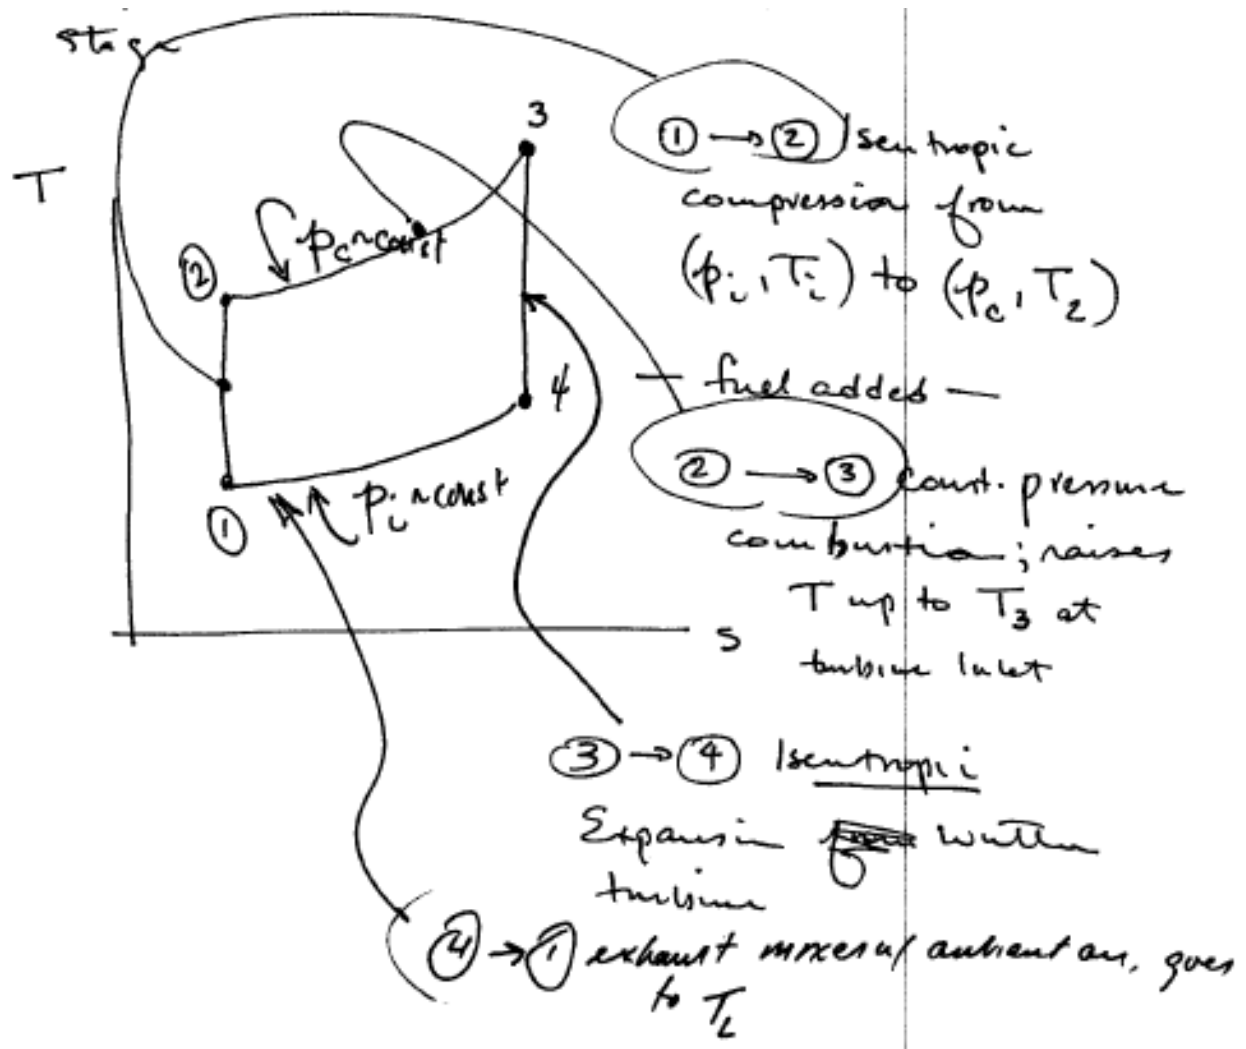 stage
T
3
②
p_c ~ const
4
p_i ~ const
①
s
① → ② Isentropic
compression from
(p_i, T_i) to (p_c, T_2)
— fuel added —
② → ③ Const. pressure
combustion; raises
T up to T_3 at
turbine Inlet
③ → ④ Isentropic
Expansion within
turbine
④ → ① exhaust mixes w/ ambient air, goes
to T_i